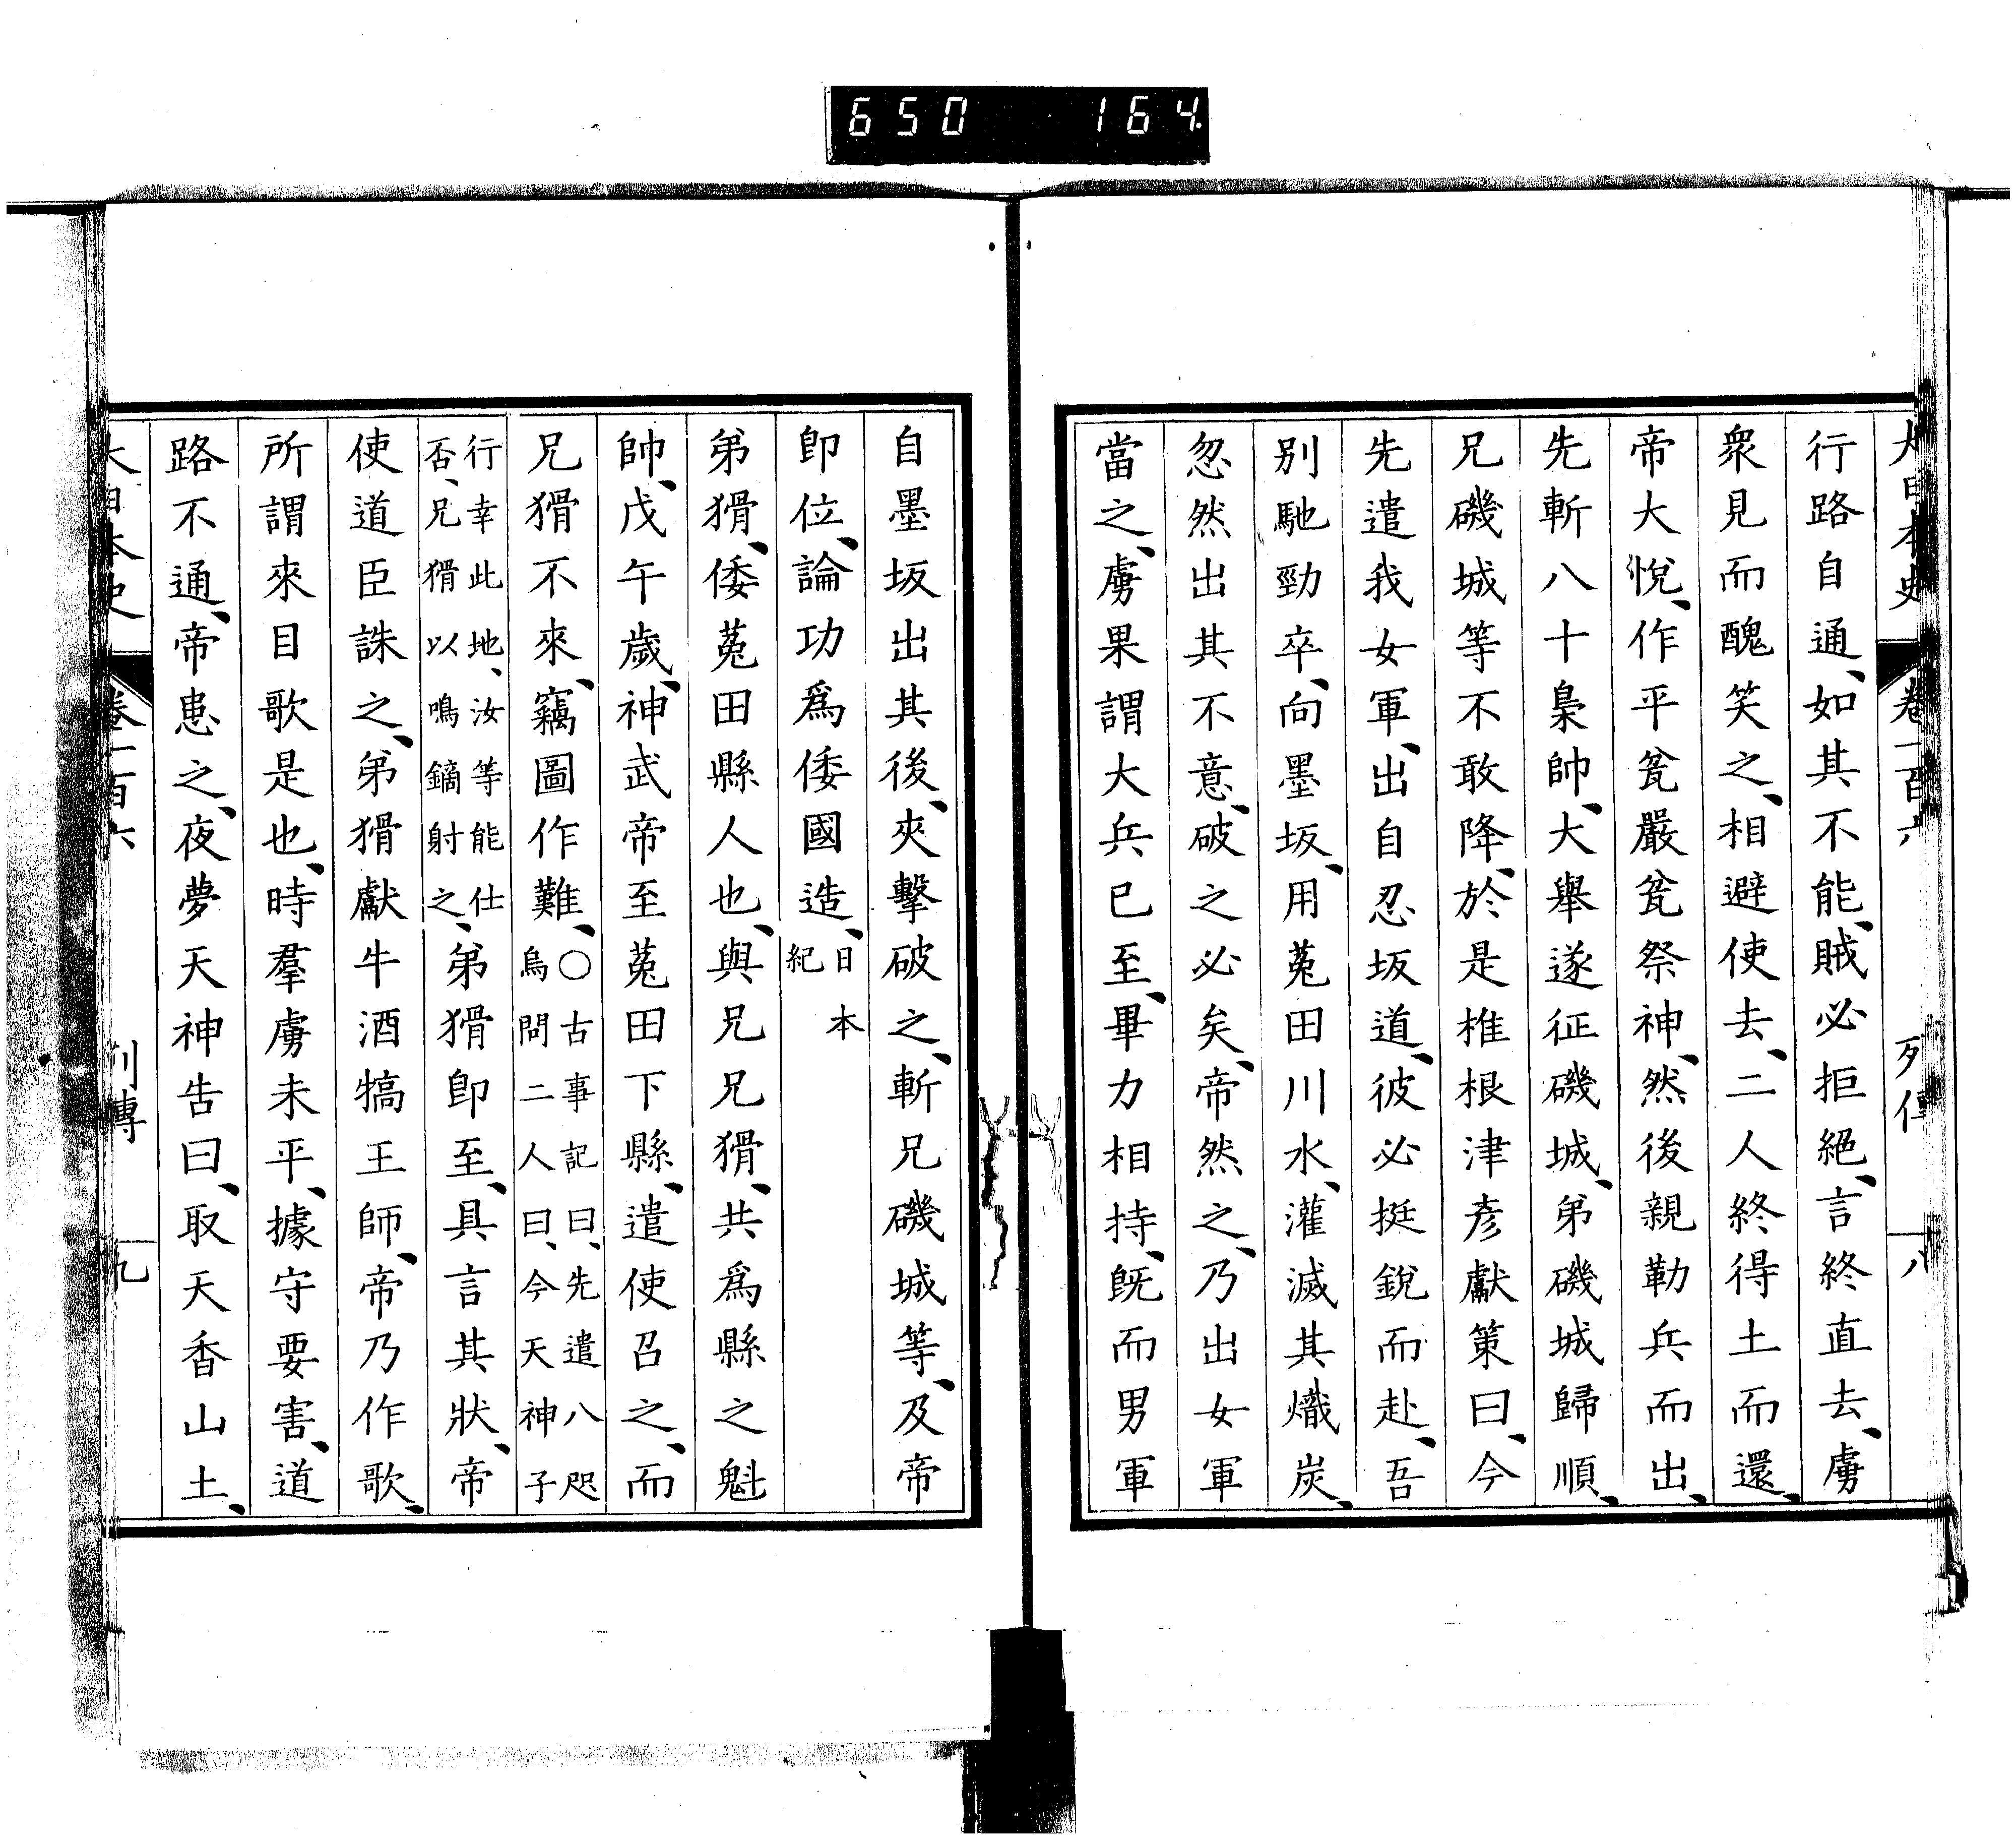 650 164
大日本史 卷一百六 列傳 八
行路自通、如其不能、賊必拒絕、言終直去、虜
衆見而醜笑之、相避使去、二人終得土而還、
帝大悅、作平瓮嚴瓮祭神、然後親勒兵而出、
先斬八十梟帥、大舉遂征磯城、弟磯城歸順、
兄磯城等不敢降、於是椎根津彥獻策曰、今
先遣我女軍、出自忍坂道、彼必挺銳而赴、吾
別馳勁卒、向墨坂、用菟田川水、灌滅其熾炭、
忽然出其不意、破之必矣、帝然之、乃出女軍
當之、虜果謂大兵已至、畢力相持、既而男軍
自墨坂出其後、夾擊破之、斬兄磯城等、及帝
卽位、論功爲倭國造、日本紀
弟猾、倭菟田縣人也、與兄兄猾、共爲縣之魁
帥、戊午歲、神武帝至菟田下縣、遣使召之、而
兄猾不來、竊圖作難、○古事記曰、先遣八咫烏問二人曰、今天神子
行幸此地、汝等能仕否、兄猾以鳴鏑射之、弟猾卽至、具言其狀、帝
使道臣誅之、弟猾獻牛酒犒王師、帝乃作歌、
所謂來目歌是也、時羣虜未平、據守要害、道
路不通、帝患之、夜夢天神告曰、取天香山土、
大日本史 卷一百六 列傳 九